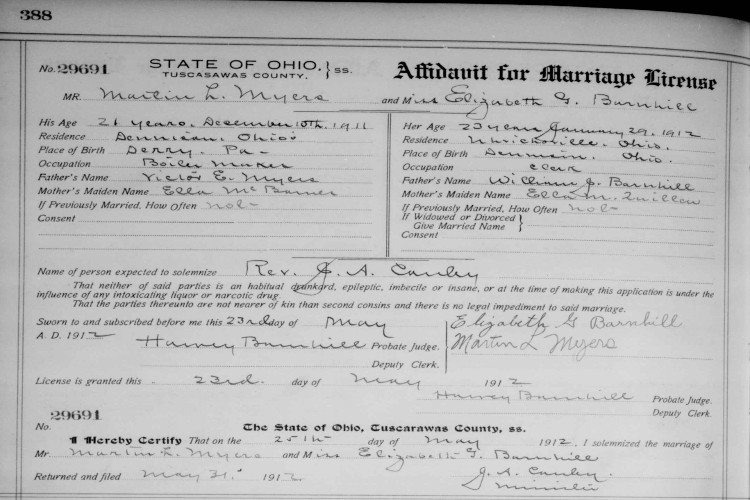 388
No. 29691 STATE OF OHIO, } ss. Affidavit for Marriage License
TUSCASAWAS COUNTY.
MR. Martin L. Myers and Miss Elizabeth G. Barnhill
His Age 21 years, December 10th, 1911
Residence Dennison, Ohio
Place of Birth Derry, Pa-
Occupation Boiler Maker
Father's Name Victor E. Myers
Mother's Maiden Name Ella
If Previously Married, How Often not-
Consent
Her Age 23 years January 29, 1912
Residence Uhrichsville, Ohio.
Place of Birth Dennison, Ohio.
Occupation Clerk
Father's Name William J. Barnhill
Mother's Maiden Name Ella M. Quillan
If Previously Married, How Often not-
If Widowed or Divorced }
Give Married Name
Consent
Name of person expected to solemnize Rev. J. A. Canby
That neither of said parties is an habitual drunkard, epileptic, imbecile or insane, or at the time of making this application is under the
influence of any intoxicating liquor or narcotic drug
That the parties thereunto are not nearer of kin than second consins and there is no legal impediment to said marriage.
Sworn to and subscribed before me this 23rd day of May
A. D. 1912
Harvey Barnhill Probate Judge.
Deputy Clerk.
Elizabeth G Barnhill
Martin L Myers
License is granted this 23rd. day of May 1912
Harvey Barnhill Probate Judge.
Deputy Clerk.
29691
No. The State of Ohio, Tuscarawas County, ss.
I Hereby Certify That on the 25th day of May 1912, I solemnized the marriage of
Mr Martin L. Myers and Miss Elizabeth G. Barnhill
J. A. Canby.
Returned and filed May 31. 1912 Minister